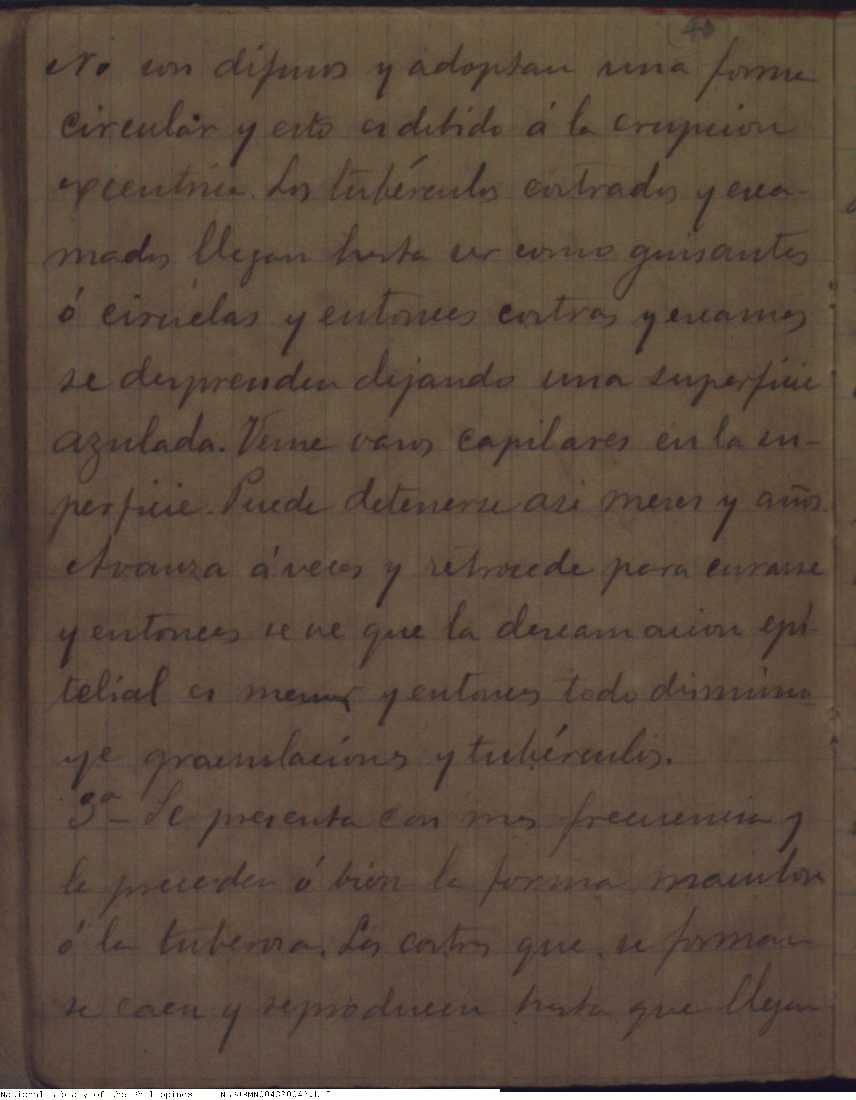 40
No son difusos y adoptan una forma
circular y esto es debido á la erupcion
excentrica. Los tubérculos costrados y esca-
mados llegan hasta ser como guisantes
ó ciruelas y entonces costras y escamas
se desprenden dejando una superficie
azulada. Vense vasos capilares en la su-
perficie. Puede detenerse asi meses y años.
Avanza á veces y retrocede para curarse
y entonces se ve que la descamacion epi
telial es menor y entonces todo disminu-
ye granulaciones y tubérculos.
3ª - Se presenta con mas frecuencia y
le preceden ó bien la forma maculosa
ó la tuberosa. Las costras que se forman
se caen y reproducen hasta que llegan
National Library of the Philippines